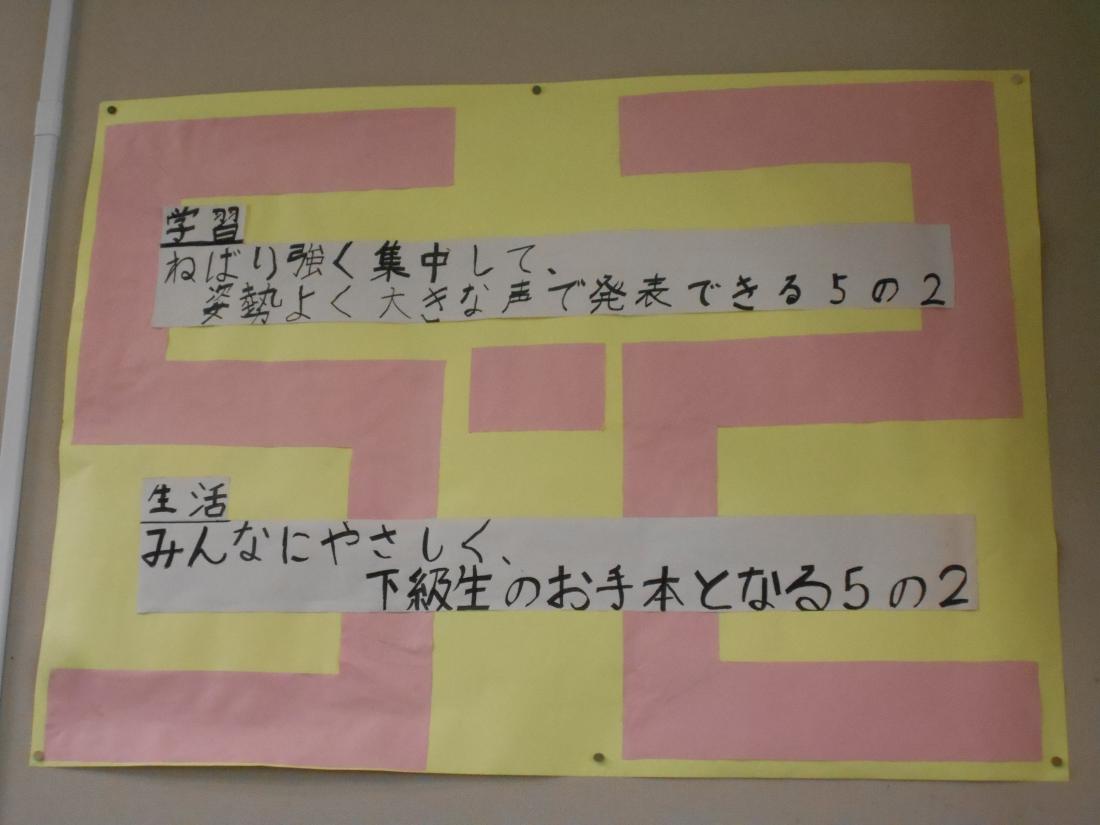 5-2
学習
ねばり強く集中して、
姿勢よく大きな声で発表できる5の2
生活
みんなにやさしく、
下級生のお手本となる5の2